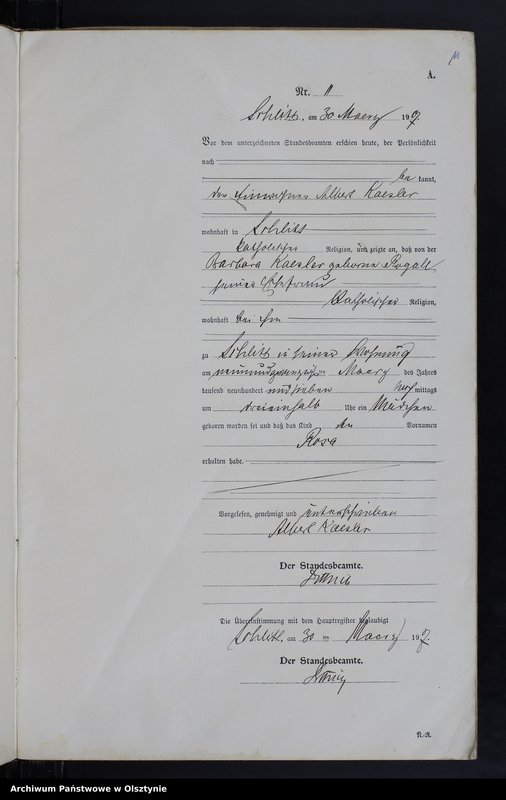 11
A.
Nr. 11
Schlitt, am 30 Maerz 1907.
Vor dem unterzeichneten Standesbeamten erschien heute, der Persönlichkeit
nach
be kannt,
der Einwohner Albert Kaesler
wohnhaft in Schlitt
katholischer Religion, und zeigte an, daß von der
Barbara Kaesler geborene Rogall,
seiner Ehefrau
katholischer Religion,
wohnhaft bei ihm
zu Schlitt in seiner Wohnung
am neunundzwanzigsten Maerz des Jahres
tausend neunhundert und sieben Nach mittags
um dreieinhalb Uhr ein Mädchen
geboren worden sei und daß das Kind den Vornamen
Rosa
erhalten habe.
Vorgelesen, genehmigt und unterschrieben
Albert Kaesler
Der Standesbeamte.
Die Übereinstimmung mit dem Hauptregister beglaubigt
Schlitt, am 30 ten Maerz 1907.
Der Standesbeamte.
Archiwum Państwowe w Olsztynie